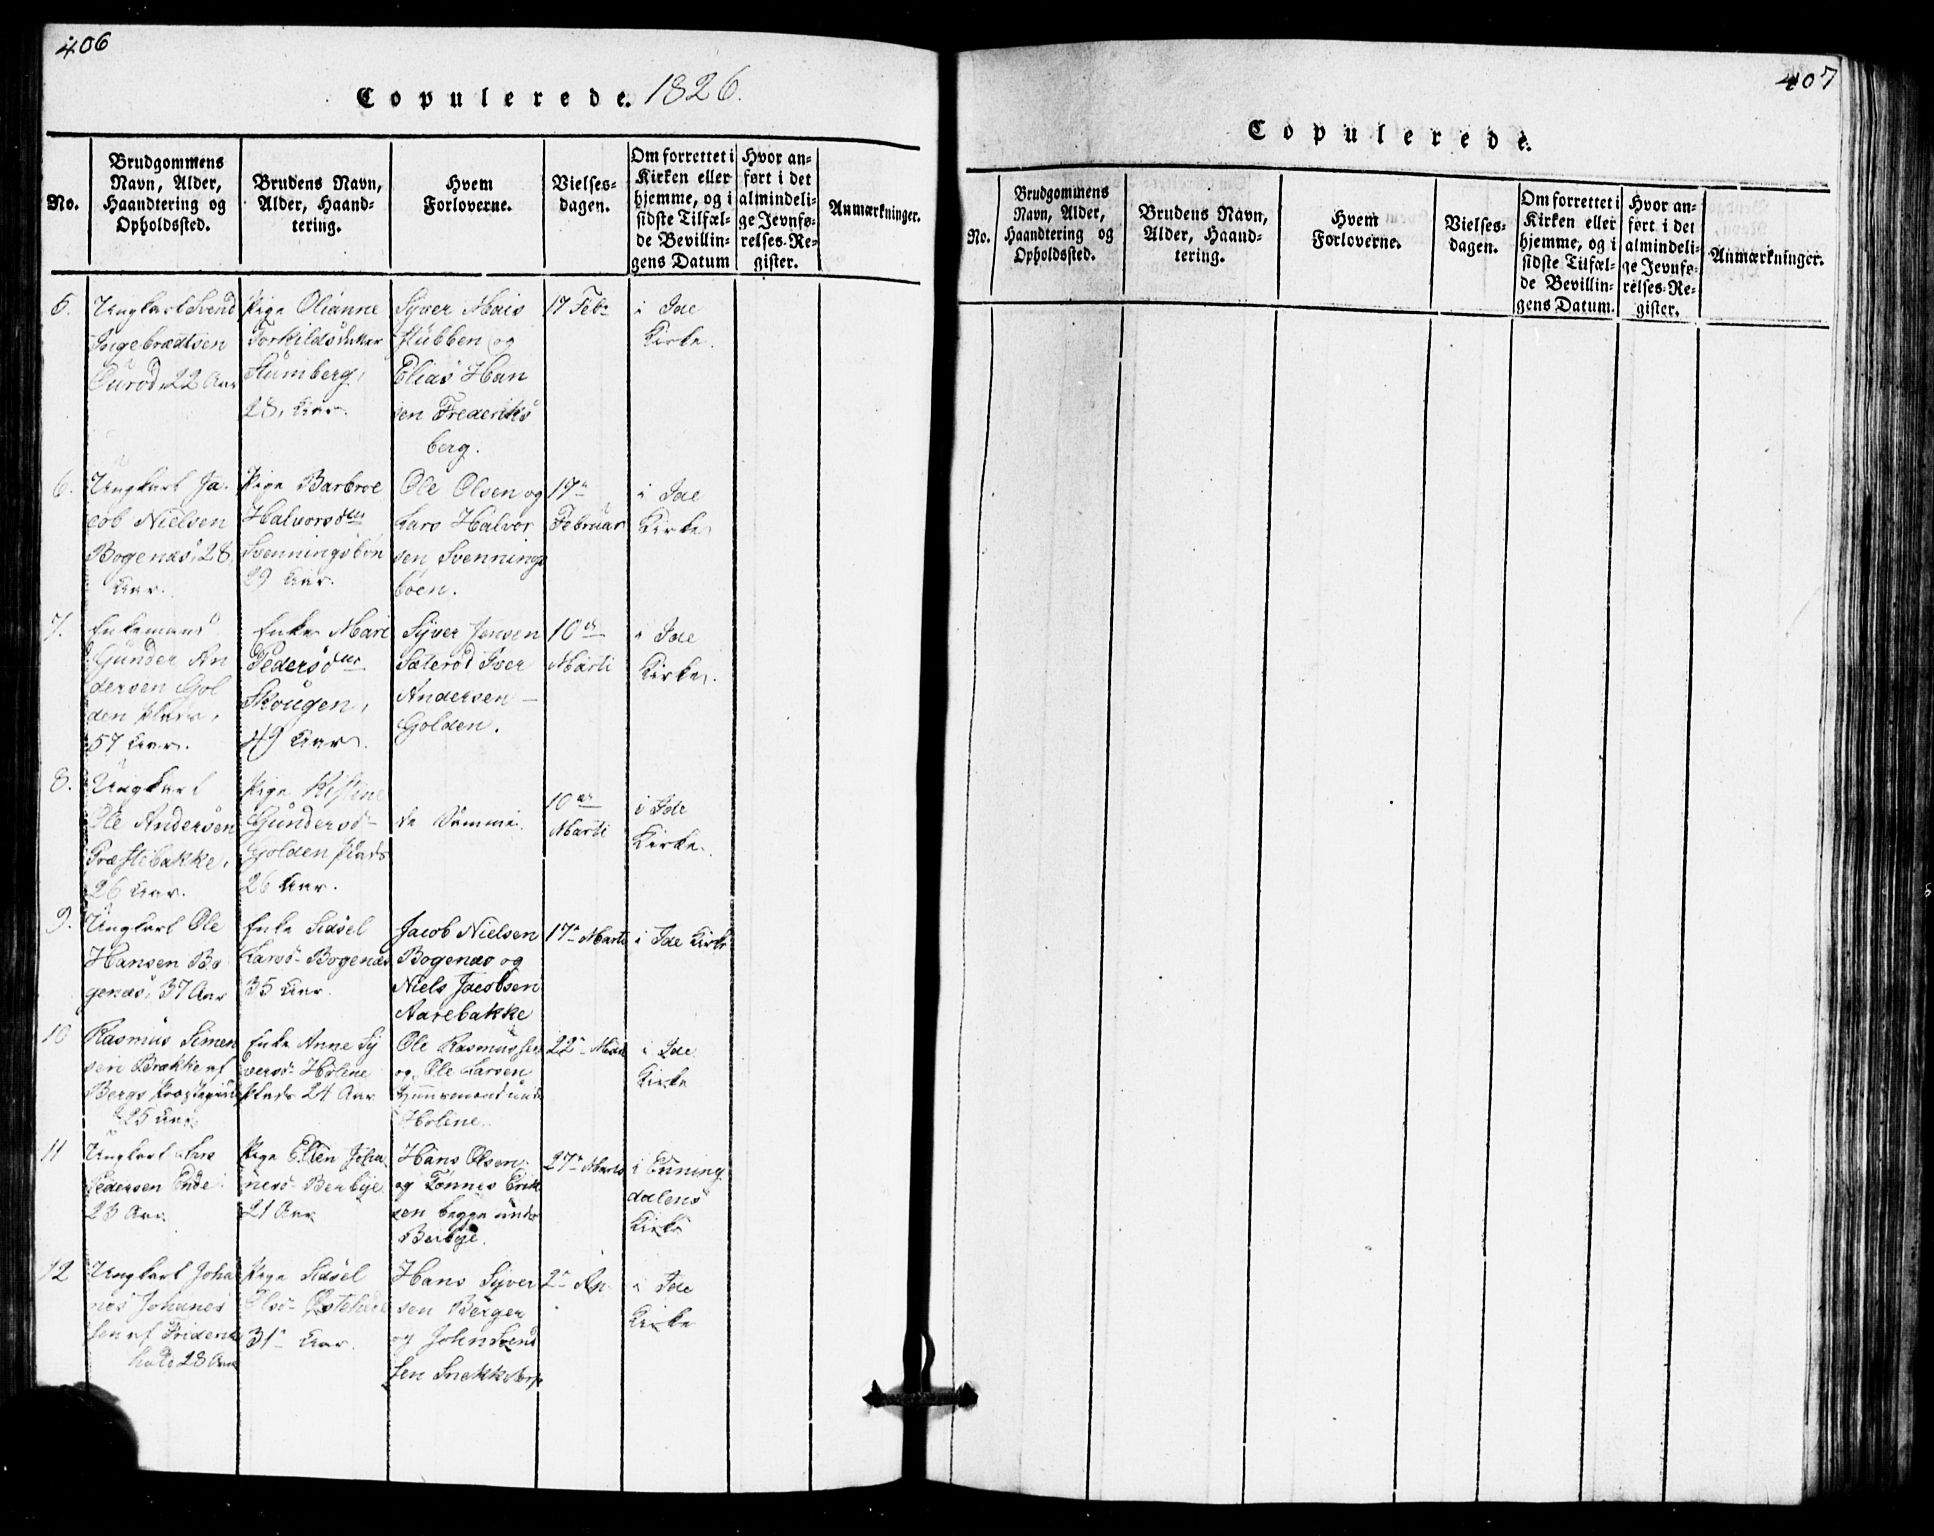 406
Copulerede. 1826.
No.
Brudgommens
Navn, Alder,
Haandtering og
Opholdssted.
Brudens Navn,
Alder, Haand=
tering.
Hvem
Forloverne.
Vielses=
dagen.
Om forrettet i
Kirken eller
hjemme, og i
sidste Tilfæl=
de Bevillin=
gens Datum
Hvor an=
ført i det
almindeli=
ge Jevnfø=
relses-Re=
gister.
Anmærkninger.
5.
Ungkarl Svend
Ingebrædtsen
22 Aar
Pige Olianne
Torkildsdatter
28, Aar.
Syver
Stubben og
Elias Han
sen Frederiks
berg.
17 Febr
i Ide
Kirke.
6.
Ungkarl Ja-
cob Nielsen
Bogenæs, 28
Aar.
Pige Barbroe
Halvorsdtr
Svenningsbøn
29 Aar.
Ole Olsen og
Lars Halvor
sen Svennings
bøen.
17de
Februar
i Ide
Kirke
7.
Enkemand
Gunder An
dersen Gol
den Plads,
57 Aar.
Enke Mari
Pedersdtr
Skougen,
49 Aar.
Syver Jensen
Sæterød Iver
Andersen –
Golden.
10de
Marti
i Ide
Kirke.
8.
Ungkarl
Ole Andersen
Præstebakke,
26 Aar.
Pige Kistine
Gundersd-
Golden Plads
26 Aar.
de Samme.
10de
Marti
i Ide
Kirke.
9.
Ungkarl Ole
Hansen Bo
genæs, 37 Aar
Enke Sidsel
Larsd- Bogenæs
35 Aar.
Jacob Nielsen
Bogenæs og
Niels Jacobsen
Aarebakke
17de Marti
i Ide Kirke
10
Rasmus Simen
sen Brække af
Bergs Præstegield
25 Aar.
Enke Anne Sy
versd- Holene
Plads 24 Aar
Ole Rasmussen
og Ole Larsen
Huusmænd under
Holene.
22de
i Ide
Kirke
11
Ungkarl Lars
Pedersen Ende
23 Aar
Pige Ellen Joha
nesd- Berbye
21 Aar
Hans Olsen
og Tønnes Erik
sen begge under
Berbye.
27de Marts
i Enning
dalens
Kirke
12
Ungkarl Joha
nes Johanes
sen af Fridericks
hald 28 Aar
Pige Sidsel
Olsd-
31- Aar.
Hans Syver
sen Berger
og John Svend
sen
2de Ap.
i Ide
Kirke
407
Copulerede.
No.
Brudgommens
Navn, Alder,
Haandtering og
Opholdssted.
Brudens Navn,
Alder, Haand=
tering.
Hvem
Forloverne.
Vielses=
dagen.
Om forrettet i
Kirken eller
hjemme, og i
sidste Tilfæl=
de Bevillin=
gens Datum.
Hvor an=
ført i det
almindeli=
ge Jevnfø=
relses-Re=
gister.
Anmærkninger.